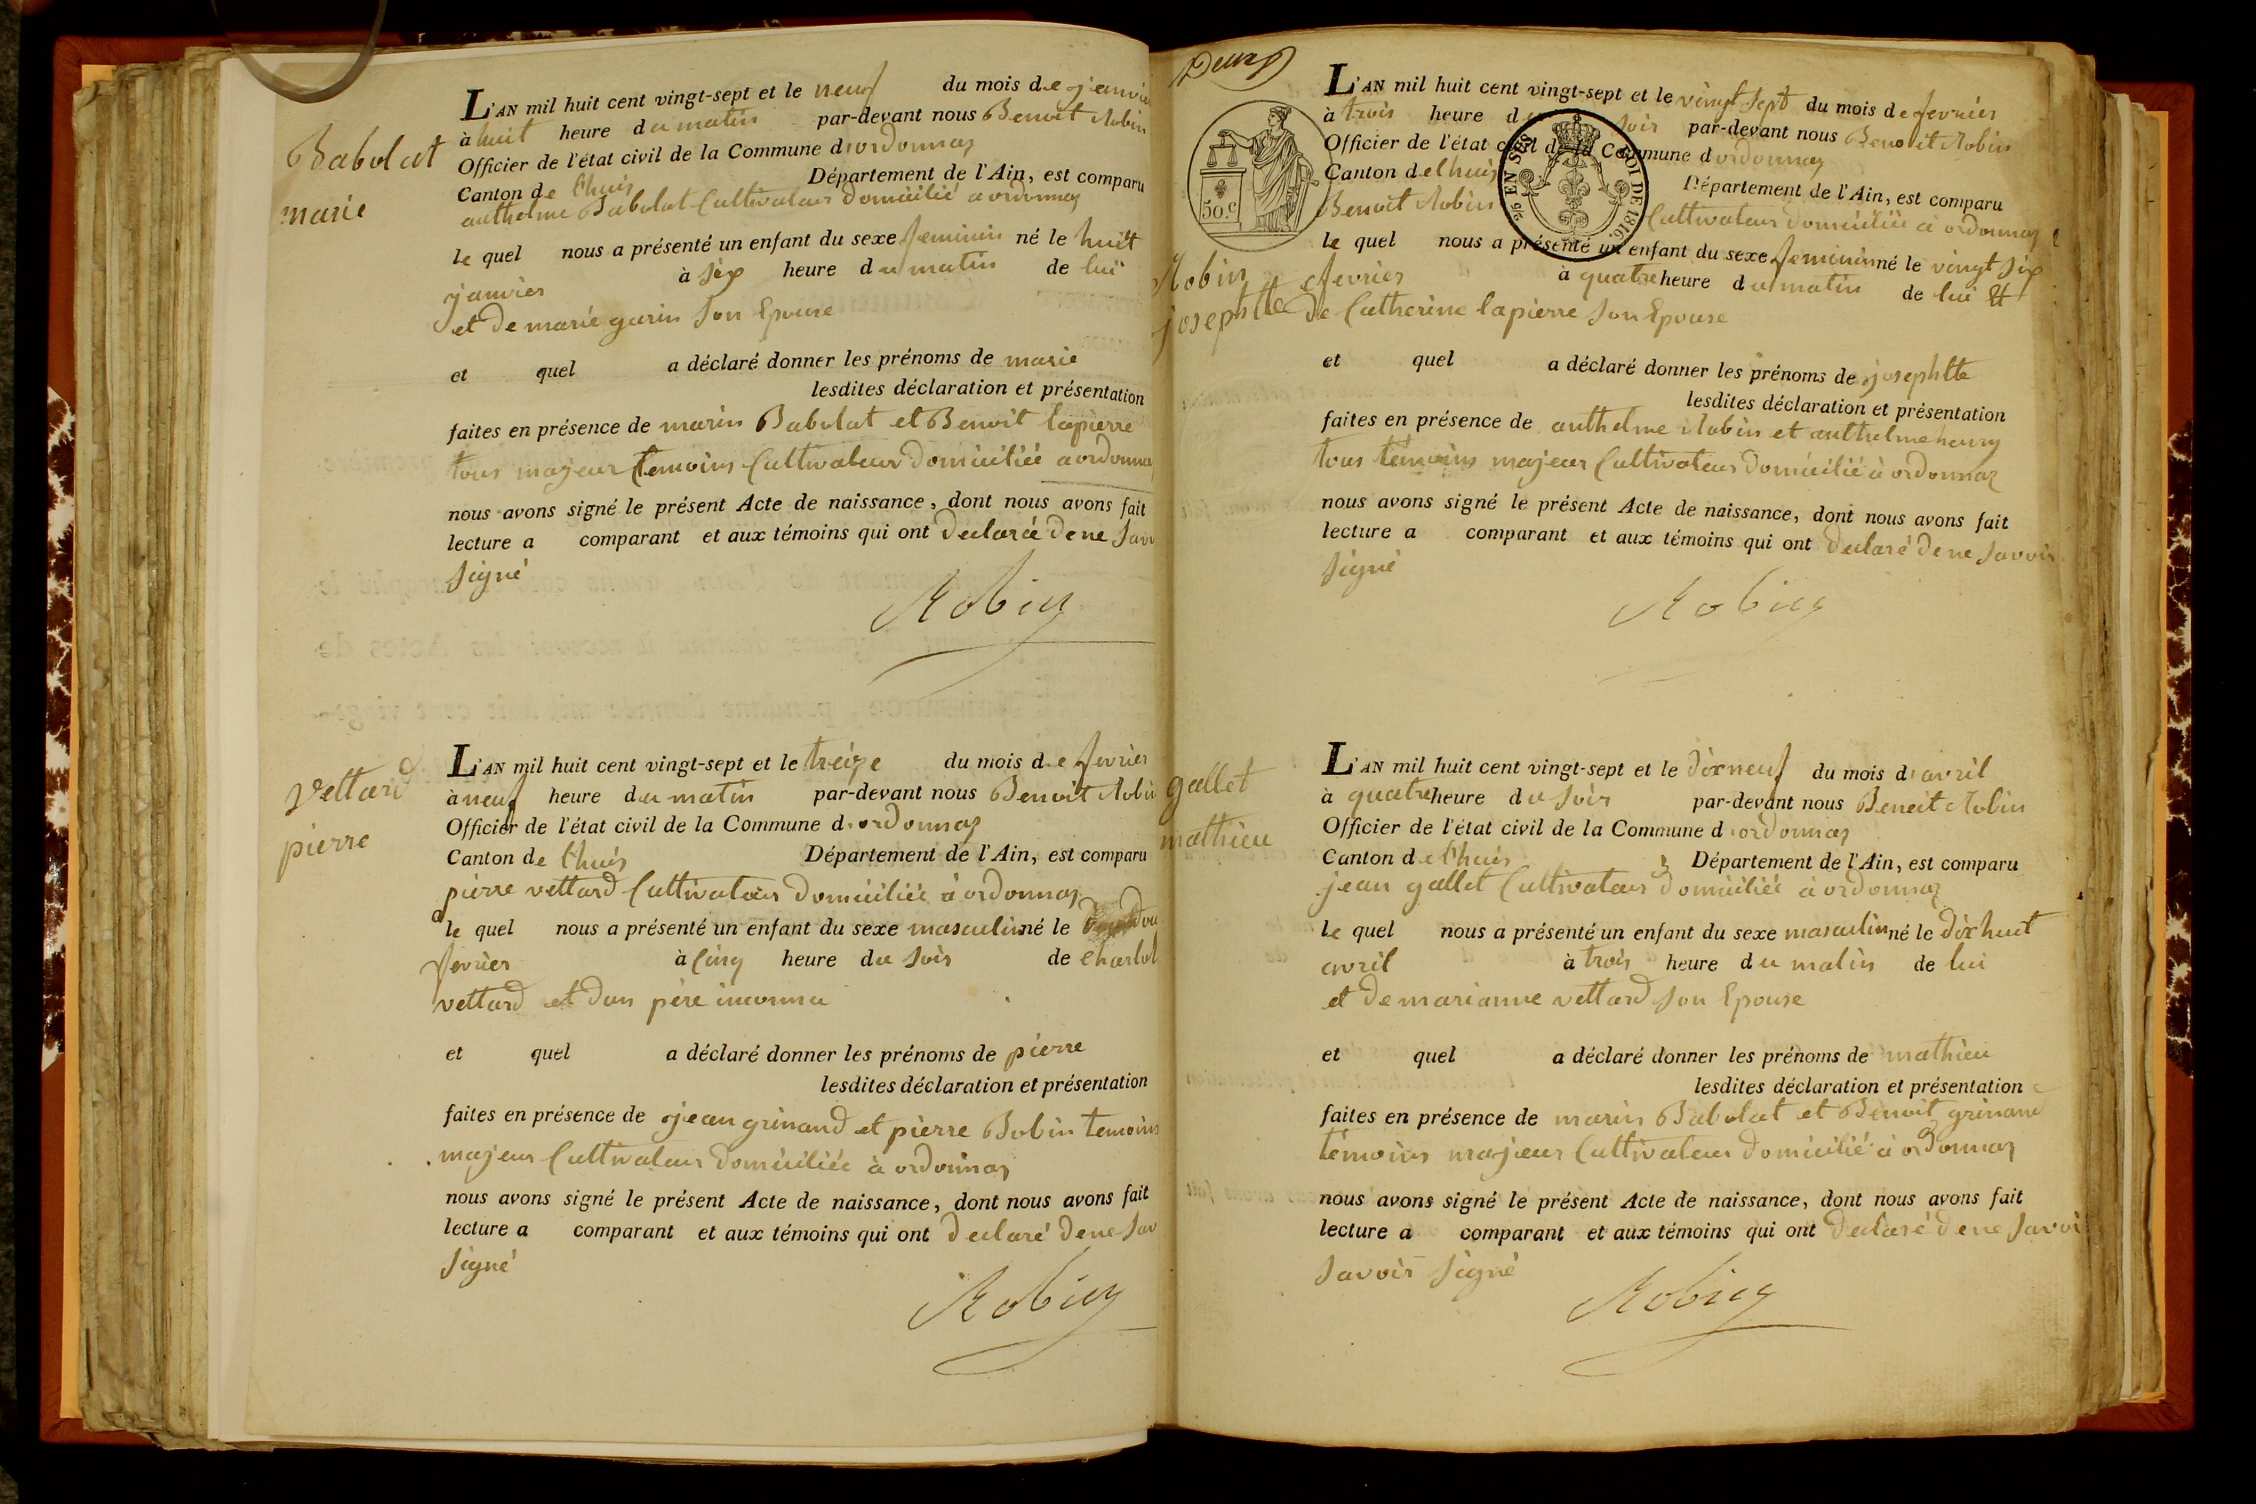 Babolat
marie
L'AN mil huit cent vingt-sept et le neuf du mois de janvier
à huit heure du matin par-devant nous Benoit Robin
Officier de l'état civil de la Commune d'ordonnaz
Canton de Lhuis Département de l'Ain, est comparu
anthelme Babolat Cultivateur domicilié a ordonnaz
le quel nous a présenté un enfant du sexe feminin né le huit
janvier à six heure du matin de lui
et de marie garin son Epouse
et quel a déclaré donner les prénoms de marie
lesdites déclaration et présentation
faites en présence de marin Babolat et Benoit lapierre
tous majeur temoins Cultivateur domiciliée a ordonnaz
nous avons signé le présent Acte de naissance, dont nous avons fait
lecture a comparant et aux témoins qui ont declaré de ne Savoir
signé
Robin
Vettard
pierre
L'AN mil huit cent vingt-sept et le treize du mois de fevrier
à neuf heure du matin par-devant nous Benoit Robin
Officier de l'état civil de la Commune d'ordonnaz
Canton de Lhuis Département de l'Ain, est comparu
pierre vettard Cultivateur domiciliée à ordonnaz
le quel nous a présenté un enfant du sexe masculin né le
fevrier à Cinq heure du soir de Charlot
vettard et dun père inconnu
et quel a déclaré donner les prénoms de pierre
lesdites déclaration et présentation
faites en présence de jean grinand et pierre Bobin temoins
majeur Cultivateur domiciliée à ordonnaz
nous avons signé le présent Acte de naissance, dont nous avons fait
lecture a comparant et aux témoins qui ont declaré de ne Sav
signé
Robin
Deux
50.C
EN SUS
LOI DE 1816.
Robin
josephtte
L'AN mil huit cent vingt-sept et le vingt sept du mois de fevrier
à trois heure du soir par-devant nous Benoit Robin
Officier de l'état civil de la Commune d'ordonnaz
Canton de Lhuis Département de l'Ain, est comparu
Benoit Robin Cultivateur domiciliée à ordonnaz
le quel nous a présenté un enfant du sexe feminin né le vingt six
fevrier à quatre heure du matin de lui Et
De Catherine lapierre son Epouse
et quel a déclaré donner les prénoms de josephtte
lesdites déclaration et présentation
faites en présence de anthelme Robin et anthelme henry
tous témoins majeur Cultivateur domicilié à ordonnaz
nous avons signé le présent Acte de naissance, dont nous avons fait
lecture a comparant et aux témoins qui ont declaré de ne Savoir
signé
Robin
gallet
mathieu
L'AN mil huit cent vingt-sept et le dixneuf du mois d'avril
à quatre heure du soir par-devant nous Benoit Robin
Officier de l'état civil de la Commune d'ordonnaz
Canton de Lhuis Département de l'Ain, est comparu
jean gallet Cultivateur domiciliée à ordonnaz
le quel nous a présenté un enfant du sexe masculin né le dix huit
avril à trois heure du matin de lui
et de marianne vettard son Epouse
et quel a déclaré donner les prénoms de mathieu
lesdites déclaration et présentation
faites en présence de marin Babolat et Benoit grinand
témoins majeur Cultivateur domicilié à ordonnaz
nous avons signé le présent Acte de naissance, dont nous avons fait
lecture a comparant et aux témoins qui ont declaré de ne Savoi
savoir signé
Robin